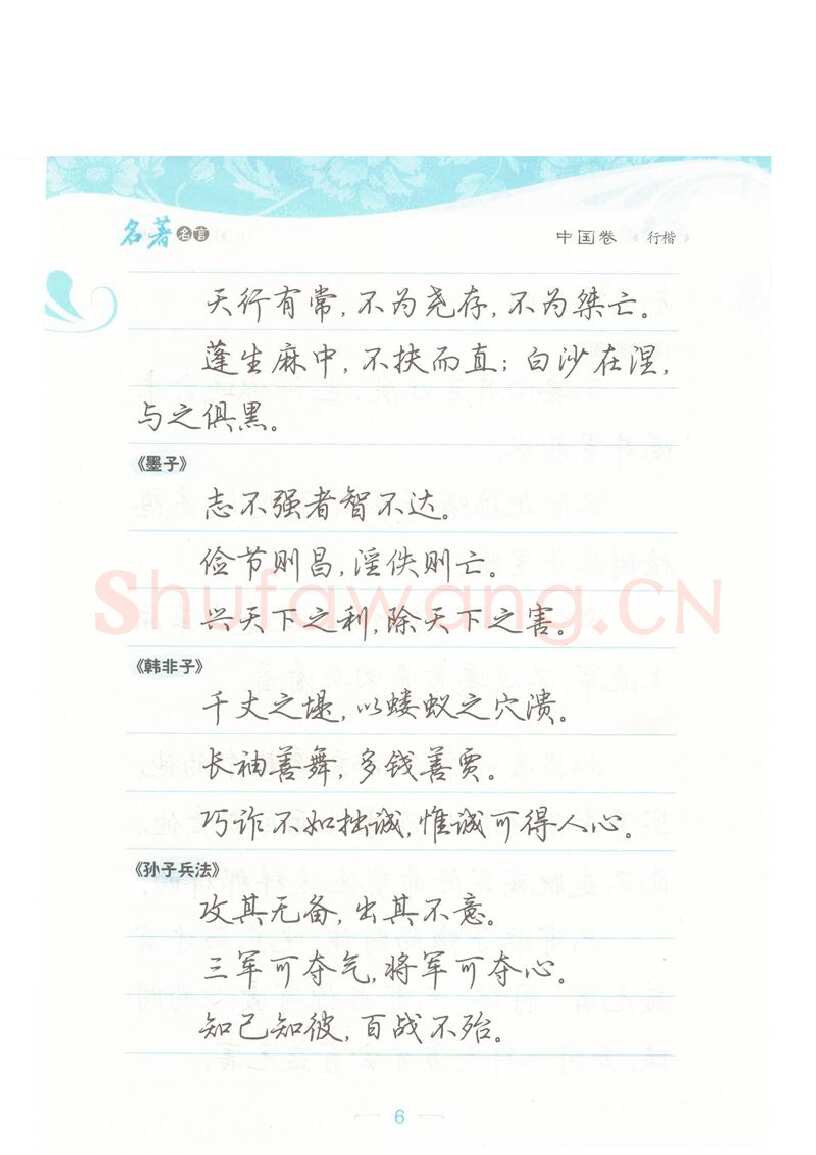 名著名言
中国卷 行楷
天行有常,不为尧存,不为桀亡。
蓬生麻中,不扶而直;白沙在涅,
与之俱黑。
《墨子》
志不强者智不达。
俭节则昌,淫佚则亡。
Shufawang.CN
兴天下之利,除天下之害。
《韩非子》
千丈之堤,以蝼蚁之穴溃。
长袖善舞,多钱善贾。
巧诈不如拙诚,惟诚可得人心。
《孙子兵法》
攻其无备,出其不意。
三军可夺气,将军可夺心。
知己知彼,百战不殆。
6